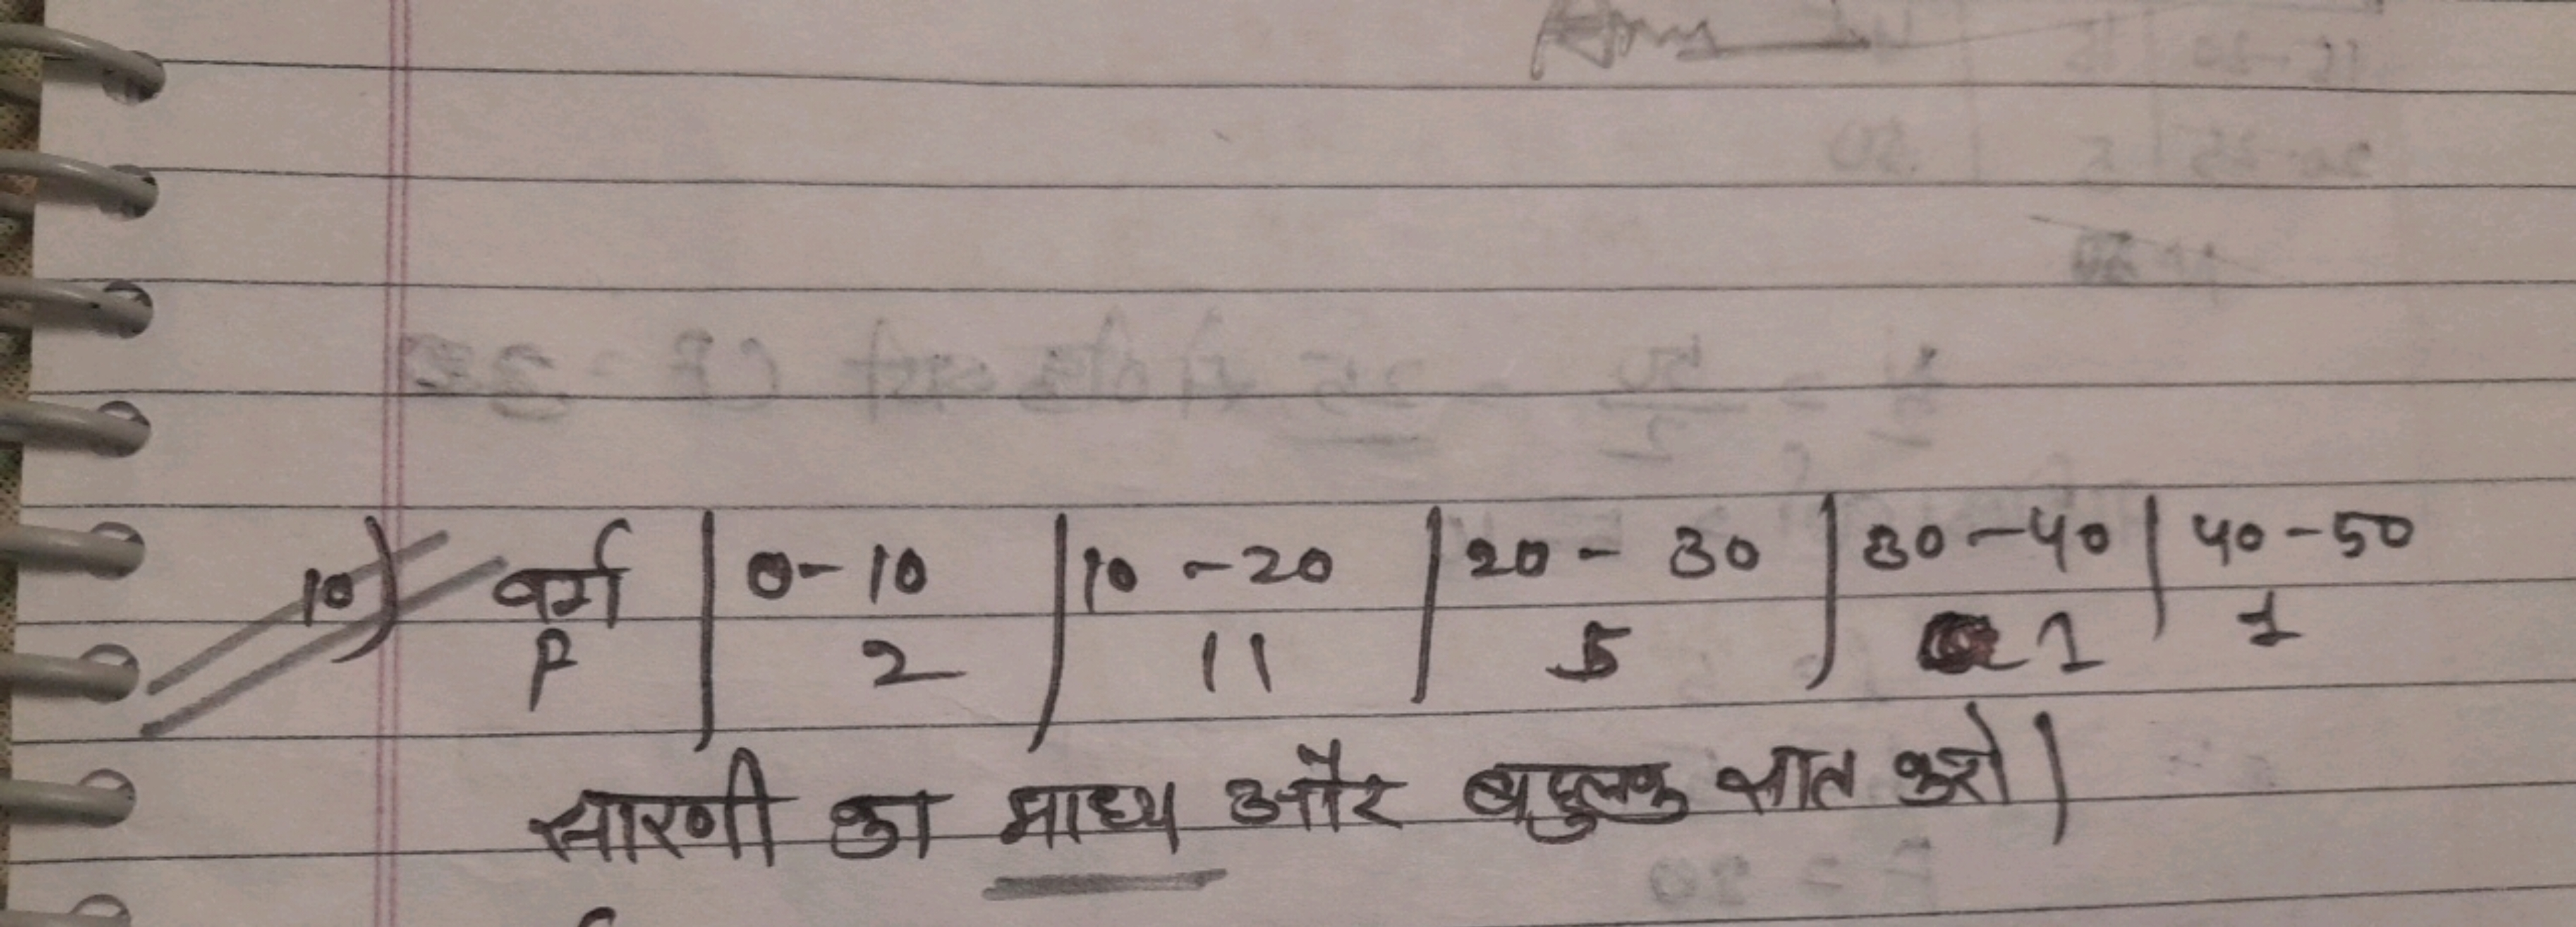 Ans
10) वर्ग | 0-10 | 10-20 | 20-30 | 30-40 | 40-50
F 2 11 5 1 1
सारणी का माध्य और बहुलक ज्ञात करो |